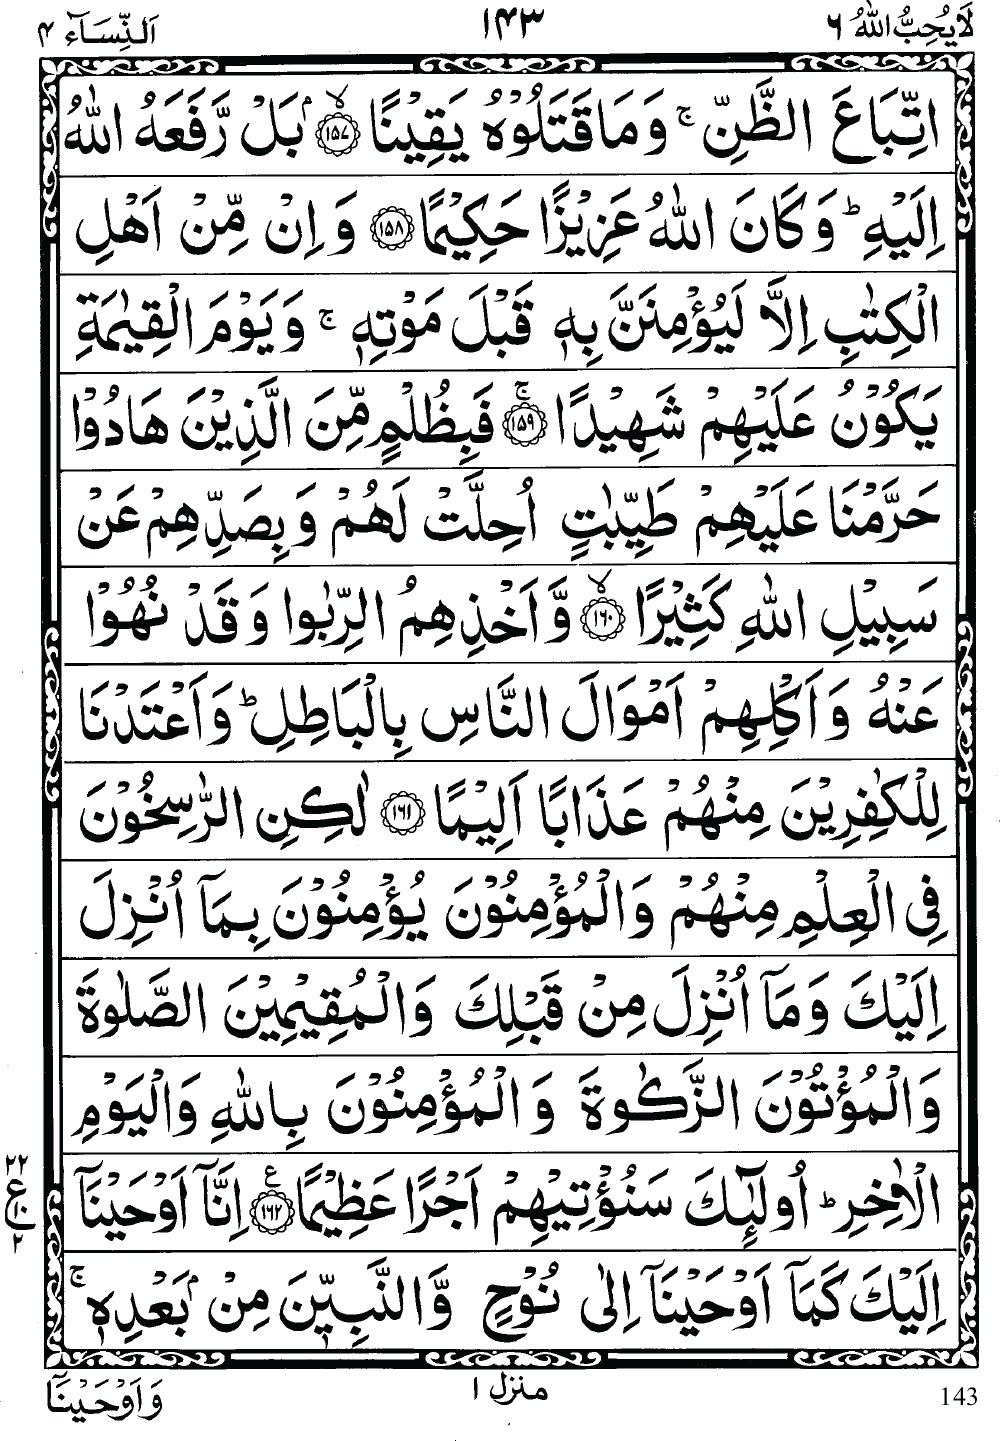 لَا يُحِبُّ اللّٰهُ ٦
١٤٣
اَلنِّسَآء ٤
اتِّبَاعَ الظَّنِّ ۚ وَمَا قَتَلُوْهُ يَقِيْنًۢا ۙ﴿١٥٧﴾ بَلْ رَّفَعَهُ اللّٰهُ
اِلَيْهِ ؕ وَكَانَ اللّٰهُ عَزِيْزًا حَكِيْمًا ﴿١٥٨﴾ وَاِنْ مِّنْ اَهْلِ
الْكِتٰبِ اِلَّا لَيُؤْمِنَنَّ بِهٖ قَبْلَ مَوْتِهٖ ۚ وَيَوْمَ الْقِيٰمَةِ
يَكُوْنُ عَلَيْهِمْ شَهِيْدًا ۚ﴿١٥٩﴾ فَبِظُلْمٍ مِّنَ الَّذِيْنَ هَادُوْا
حَرَّمْنَا عَلَيْهِمْ طَيِّبٰتٍ اُحِلَّتْ لَهُمْ وَبِصَدِّهِمْ عَنْ
سَبِيْلِ اللّٰهِ كَثِيْرًا ۙ﴿١٦٠﴾ وَّاَخْذِهِمُ الرِّبٰوا وَقَدْ نُهُوْا
عَنْهُ وَاَكْلِهِمْ اَمْوَالَ النَّاسِ بِالْبَاطِلِ ؕ وَاَعْتَدْنَا
لِلْكٰفِرِيْنَ مِنْهُمْ عَذَابًا اَلِيْمًا ﴿١٦١﴾ لٰكِنِ الرّٰسِخُوْنَ
فِى الْعِلْمِ مِنْهُمْ وَالْمُؤْمِنُوْنَ يُؤْمِنُوْنَ بِمَآ اُنْزِلَ
اِلَيْكَ وَمَآ اُنْزِلَ مِنْ قَبْلِكَ وَالْمُقِيْمِيْنَ الصَّلٰوةَ
وَالْمُؤْتُوْنَ الزَّكٰوةَ وَالْمُؤْمِنُوْنَ بِاللّٰهِ وَالْيَوْمِ
الْاٰخِرِ ؕ اُولٰٓئِكَ سَنُؤْتِيْهِمْ اَجْرًا عَظِيْمًا ﴿١٦٢﴾ع اِنَّآ اَوْحَيْنَآ
٢٢
ع
٢
اِلَيْكَ كَمَآ اَوْحَيْنَآ اِلٰى نُوْحٍ وَّالنَّبِيّٖنَ مِنْۢ بَعْدِهٖ ۚ
143
منزل ١
وَاَوْحَيْنَآ